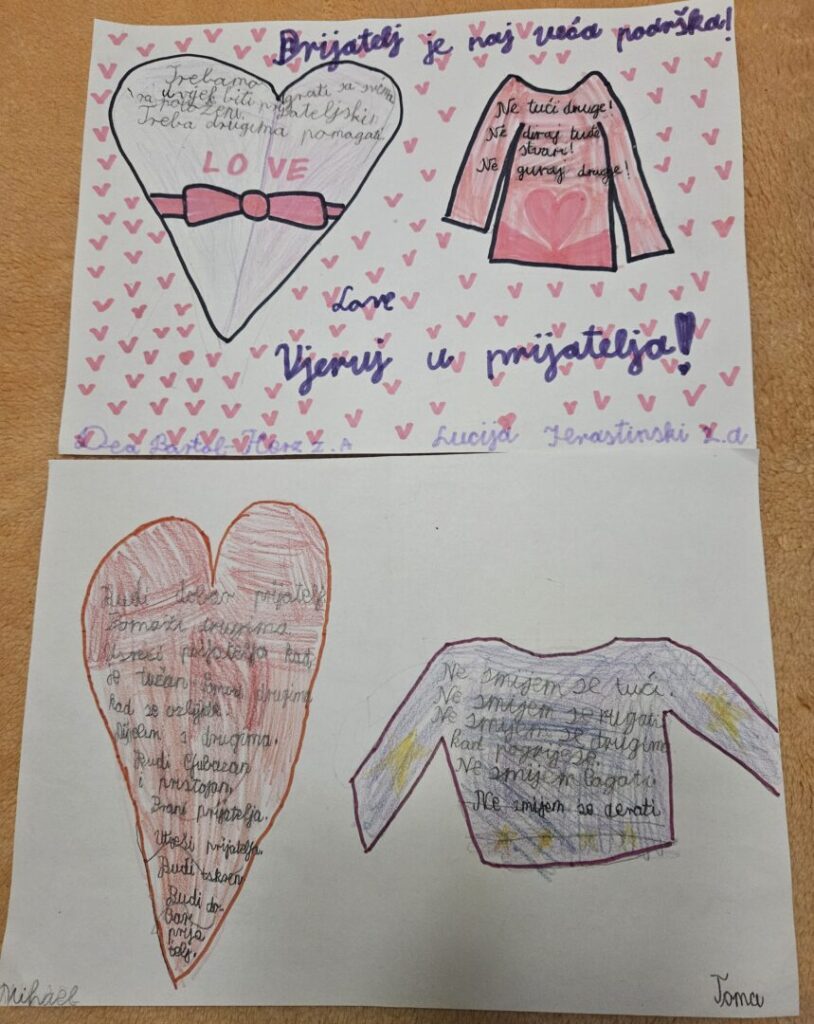 Prijatelj je naj veća podrška!
Trebamo igrati sa svima
uvijek biti prijateljski
raspoloženi.
Treba drugima pomagati.
LOVE
Ne tući druge!
Ne diraj tuđe
stvari!
Ne guraj druge!
Love
Vjeruj u prijatelja!
Dea Bartol-
Lucija 2.a
Budi dobar prijatelj
Pomozi drugima
prijatelja kad
je drugima
kad se ozlijede.
Dijelim s drugima.
Budi ljubazan
i pristojan,
Brani prijatelja.
Utješi prijatelja.
Budi iskren
Budi do-
bar
prija
telj.
Ne smijem se tući.
Ne smijem se rugati
Ne smijem se drugima
kad pogriješe.
Ne smijem lagati.
Ne smijem se derati
Mihael
Toma